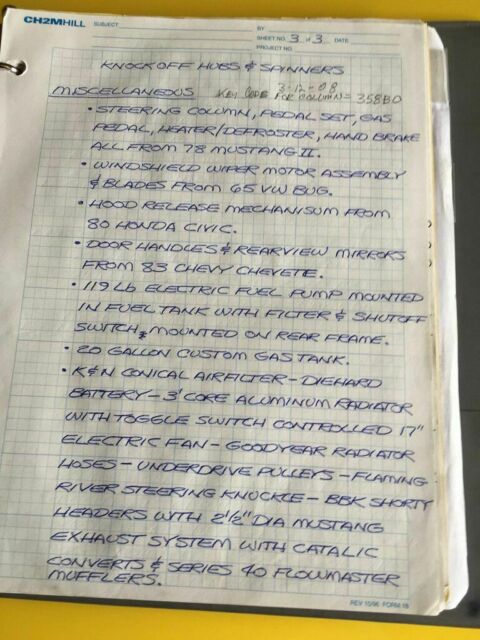 CH2MHILL
SUBJECT
BY
SHEET NO. 3 of 3 DATE
PROJECT NO.
KNOCKOFF HUBS & SPINNERS
3-12-08
MISCELLANEOUS KEY CODE FOR COLUMN = 358BD
• STEERING COLUMN, PEDAL SET, GAS
PEDAL, HEATER/DEFROSTER, HAND BRAKE
ALL FROM 78 MUSTANG II.
• WINDSHIELD WIPER MOTOR ASSEMBLY
& BLADES FROM 65 VW BUG.
• HOOD RELEASE MECHANISUM FROM
80 HONDA CIVIC.
• DOOR HANDLES & REARVIEW MIRRORS
FROM 83 CHEVY CHEVETE.
• 119 Lb ELECTRIC FUEL PUMP MOUNTED
IN FUEL TANK WITH FILTER & SHUTOFF
SWITCH, MOUNTED ON REAR FRAME.
• 20 GALLON CUSTOM GAS TANK.
• K&N CONICAL AIRFILTER - DIEHARD
BATTERY - 3' CORE ALUMINUM RADIATOR
WITH TOGGLE SWITCH CONTROLLED 17"
ELECTRIC FAN - GOODYEAR RADIATOR
HOSES - UNDERDRIVE PULLEYS - FLAMING
RIVER STEERING KNUCKLE - BBK SHORTY
HEADERS WITH 2 1/2" DIA MUSTANG
EXHAUST SYSTEM WITH CATALIC
CONVERTS & SERIES 40 FLOWMASTER
MUFFLERS.
REV 10/96 FORM 18